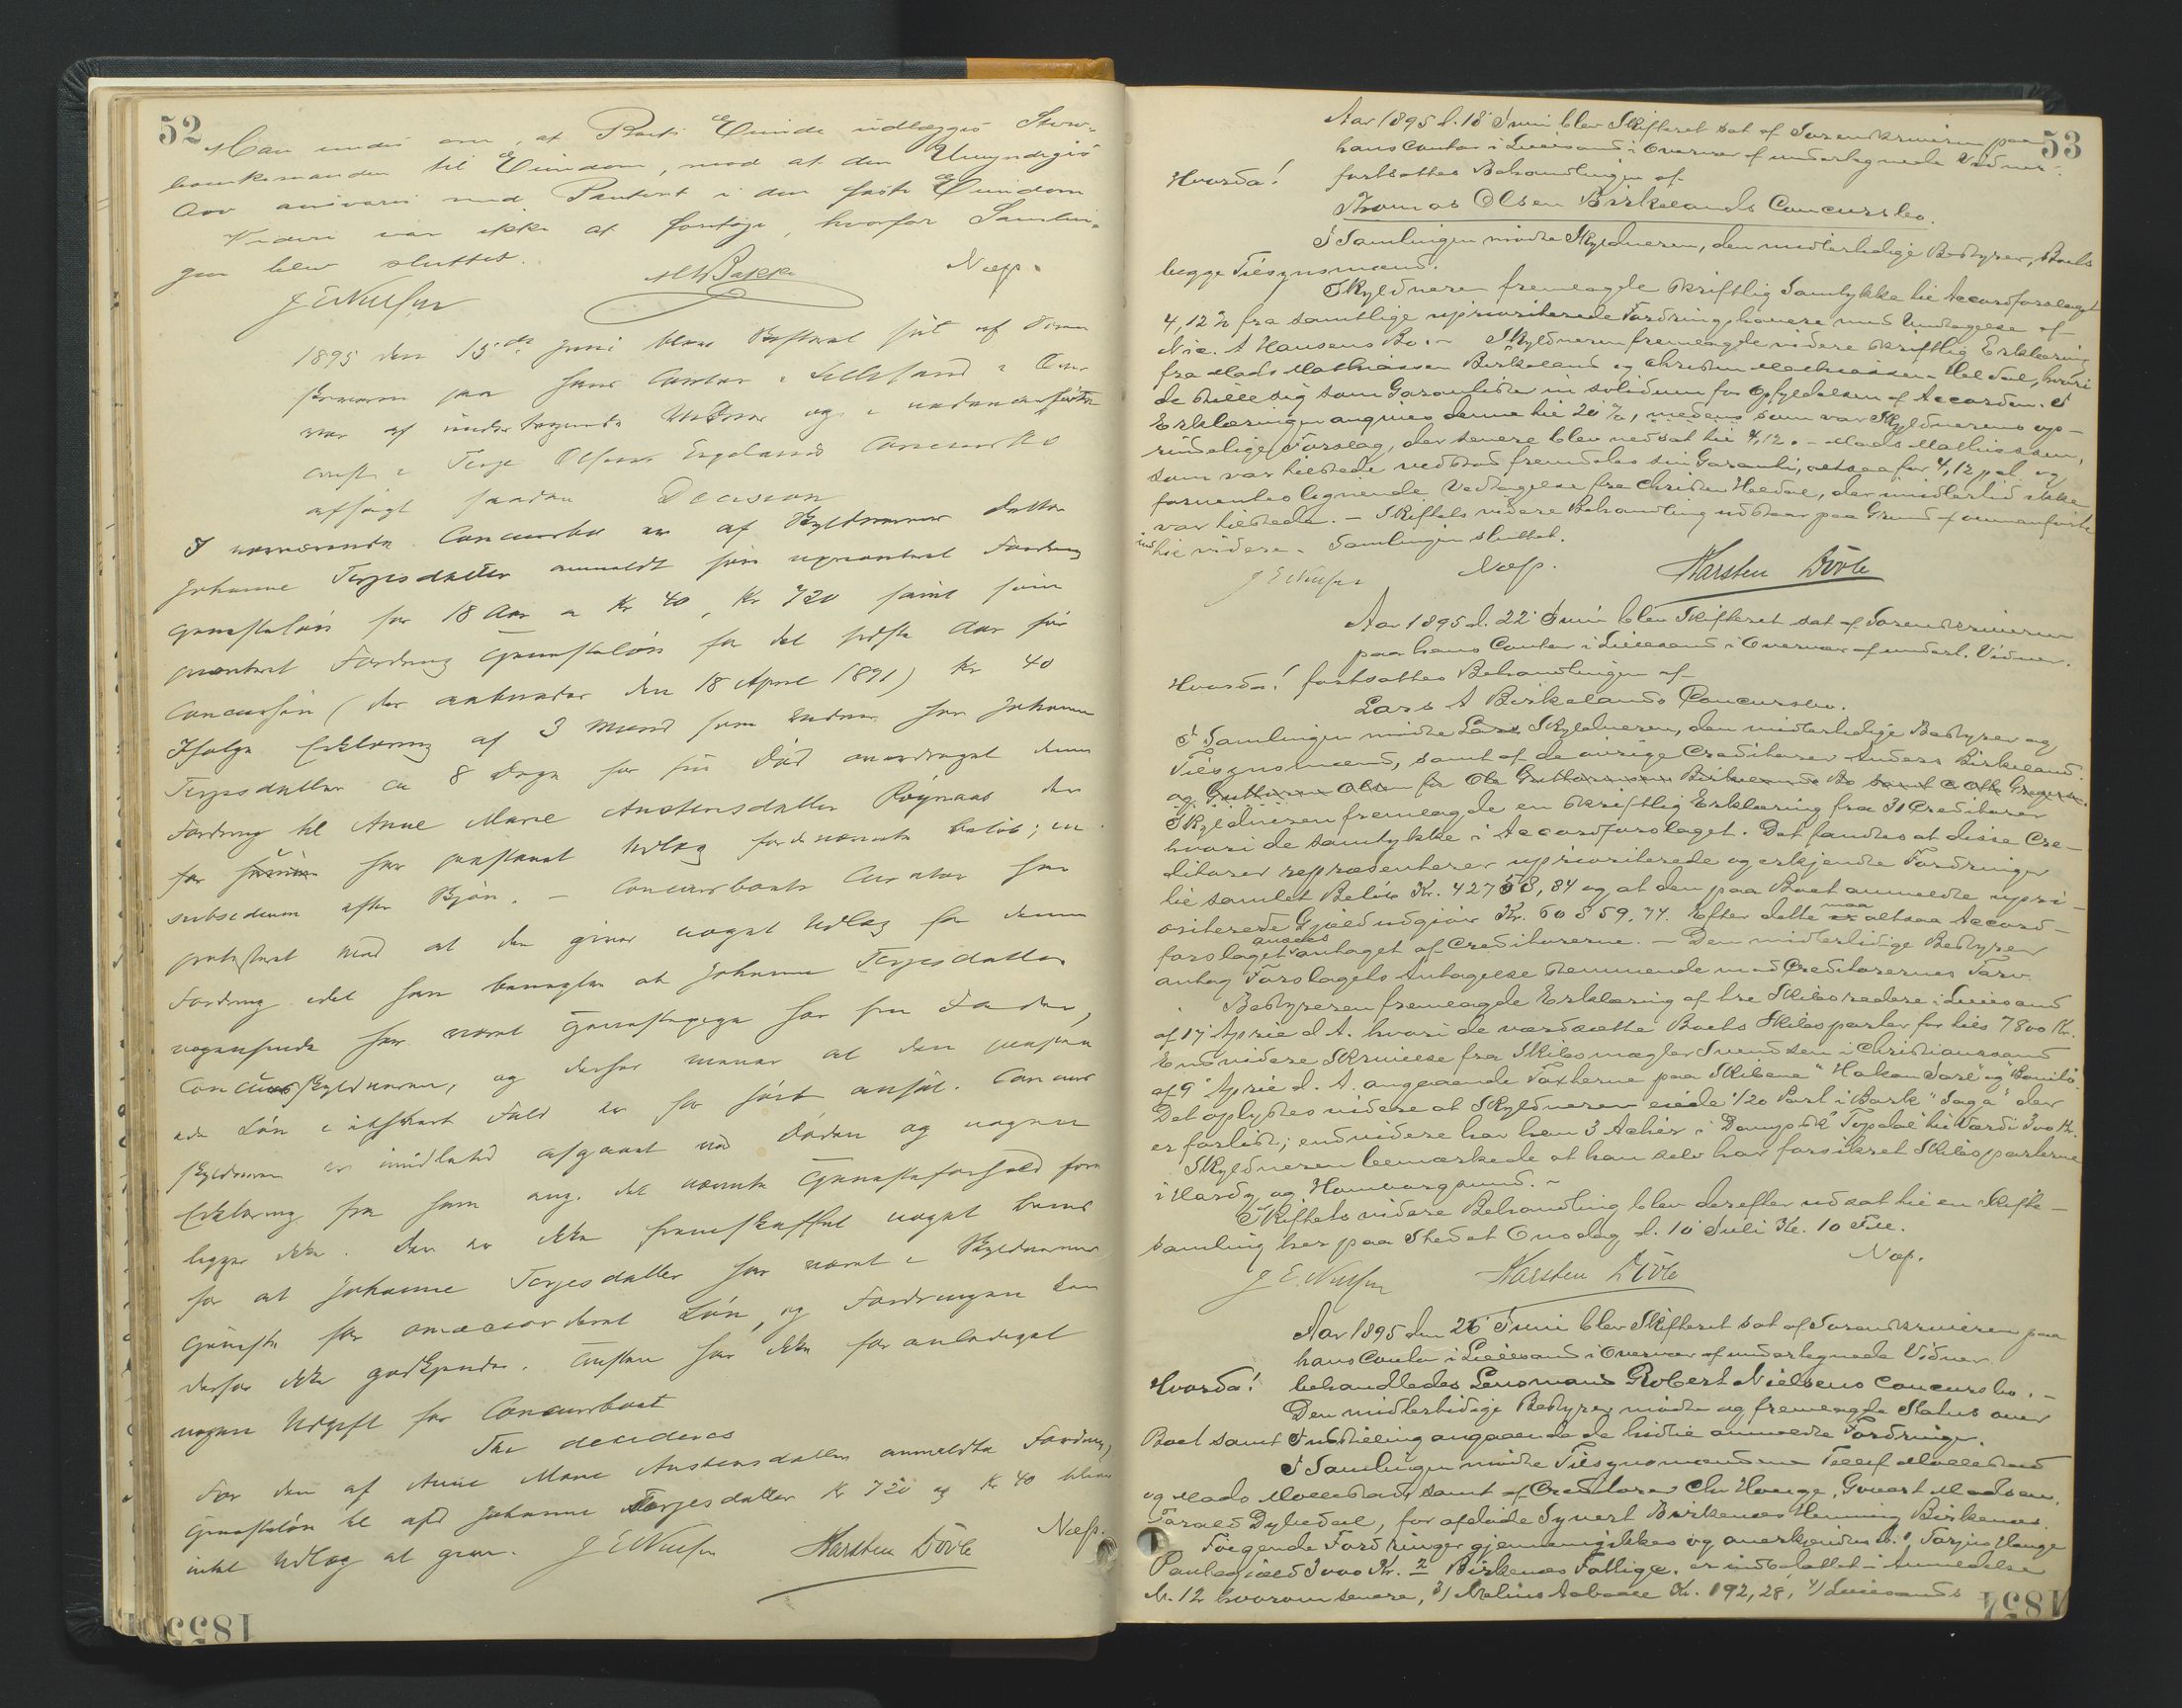 52
Man enedes om, at Boets Eiende udlægges Stervboenkemanden til Eiendom, mod at den Umyndiges
Arv assureres med Panteret i den faste Eiendom
Videre var ikke at foretage, hvorfor Samlingen
blev sluttet.
J E Nielsen Næss.
1895 den 15de Juni blev Skifteret sat af Soren
skriveren paa hans Contor i Lillesand i Over
vær af undertegnede Vidner og i nedennævnte
Tvist i Terje Olsens Concursbo
afsagt saadan Decision
I nærværende Concursbo er af Skyldnerens Datter
Johanne Terjesdatter anmeldt som uprioriteret Fordring
Tjenesteløn for 18 Aar a Kr 40, Kr 720 samt som
prioriteret Fordring Tjenesteløn for det sidste Aar før
Concursen (der aabnedes den 18 April 1891) Kr 40
Ifølge Erklæring af 3 Mænd som Vidner har Johanne
Terjesdatter ca 8 Dage før sin Død overdraget denne
Fordring til Anne Marie Austensdatter Røynaas der
har paastaaet Udlæg for de nævnte Beløb; in
subsidium efter Skjøn. – Concursboets Curator har
protesteret mod at der gives noget Udlæg for denne
Fordring idet han benægter at Johanne Terjesdatter
nogensinde har været Tjenestepige hos sin Fader,
Concursskyldneren, og derfor mener at den paastaaede
Løn i ethvert Fald er for høit ansat. Concurs
skyldneren er imidlertid afgaaet ved Døden og nogen
Erklæring fra ham ang. det nævnte Tjenesteforhold fore
ligger ikke. Der er ikke fremskaffet noget Bevis
for at Johanne Terjesdatter har været i Skyldnerens
Tjeneste for omaccorderet Løn, og Fordringen kan
derfor ikke godkjendes. Tvisten har ikke foranlediget
nogen Udgift for Concursboet
Thi decideres
For den af Anne Marie Austensdatter anmeldte Fordring,
Tjenesteløn til afd Johanne Terjesdatter Kr 720 og Kr 40 bliver
intet Udlæg at give. J E Nielsen Karsten Dövle Næss.
53
Aar 1895 d. 18 Juni blev Skifteret sat af Sorenskriveren paa
hans Contor i Lillesand i Overvær af undertegnede Vidner.
Hvorda! fortsattes Behandlingen af
Thomas Olsen Birkelands Concursbo.
I Samlingen mødte Skyldneren, den midlertidige Bestyrer, Boets
begge Tilsynsmænd.
Skyldneren fremlagde skriftlig Samtykke til Accordforslaget
4,12 % fra samtlige uprioriterede Fordringshavere med Undtagelse af
Nic. A Hansens Bo. – Skyldneren fremlagde videre skriftlig Erklæring
fra Mads Mathiassen Birkeland og Christen Mathiassen Heldal, hvori
de stille sig som Garantister in solidum for Opfyldelsen af Accorden. I
Erklæringen angives denne til 20 %, medens som var Skyldnerens op-
rindelige Forslag, der senere blev nedsat til 4,12. – Mads Mathiassen,
som var tilstede vedstod fremdeles sin Garanti, altsaa for 4,12 pCt og
forventes lignende Vedtagelse fra Christen Heldal, der imidlertid ikke
var tilstede. – Skiftets videre Behandling udstaar paa Grund af ommeldte
indtil videre. Samlingen sluttet.
J E Nielsen Næss. Karsten Dövle
Aar 1895 d. 22 Juni blev Skifteret sat af Sorenskriveren
paa hans Contor i Lillesand i Overvær af undert. Vidner.
Hvorda! fortsattes Behandlingen af
Lars A Birkelands Concursbo.
I Samlingen mødte Lars Skyldneren, den midlertidige Bestyrer og
Tilsynsmænd, samt af de øvrige Creditorer Anders Birkeland.
Skyldneren fremlagde en skriftlig Erklæring fra 31 Creditorer
hvori de samtykke i Accordforslaget. Det fandtes at disse Cre-
ditorer repræsenterer uprioriterede og erkjendte Fordringer
til samlet Beløb Kr. 42758,84 og at den paa Boet anmeldte upri-
oriterede Gjæld udgjør Kr. 60559,74. Efter dette maa altsaa Accord-
forslaget ansees antaget af Creditorerne. – Den midlertidige Bestyrer
antog Forslagets Antagelse stemmende med Creditorernes Tarv.
Bestyreren fremlagde Erklæring af tre Skibsredere i Lillesand
af 17 April d. A. hvori de værdsætte Boets Skibsparter for tils 7800 Kr.
Endvidere Skrivelse fra Skibsmægler Svendsen i Christianssand
af 9 April d. A. angaaende Taxterne paa Skibene "Hakon Jarl" og "Bonito".
Det oplystes videre at Skyldneren eiede 1/20 Part i Bark "Saga" der
er forlist; endvidere har han 3 Actier i Dampsk "Topdal" til Værdi 300 Kr.
Skyldneren bemærkede at han selv har forsikret Skibsparterne
i Hardy og Homborgsund. –
Skiftets videre Behandling blev derefter udsat til en Skifte-
samling her paa Stedet Onsdag d. 10 Juli Kl. 10 Fm.
J E. Nielsen Karsten Dövle Næss.
Aar 1895 den 26 Juni blev Skifteret sat af Sorenskriveren paa
hans Contor i Lillesand i Overvær af undertegnede Vidner.
Hvorda! behandledes Lensmand Robert Nielsens Concursbo. –
Den midlertidige Bestyrer mødte og fremlagde Status over
Boet samt Indstilling angaaende de hidtil anmeldte Fordringer.
I Samlingen mødte Tilsynsmændene Tellef Mollestad
og Mads Mollestad samt af Creditorer Chr Hauge, Govert Madsen,
Tarald Dyltedal, for afdøde Syvert Birkenes Henning Birkenes.
Følgende Fordringer gjennemgikkes og anerkjendtes N. 1, Terjes Hauge
Pantegjæld 3000 Kr. 2 Birkenes Fattigc. er indbefattet i Anmeldelse
N. 12 hvorom senere, 3) Kr. 192,28, 4) Lillesands